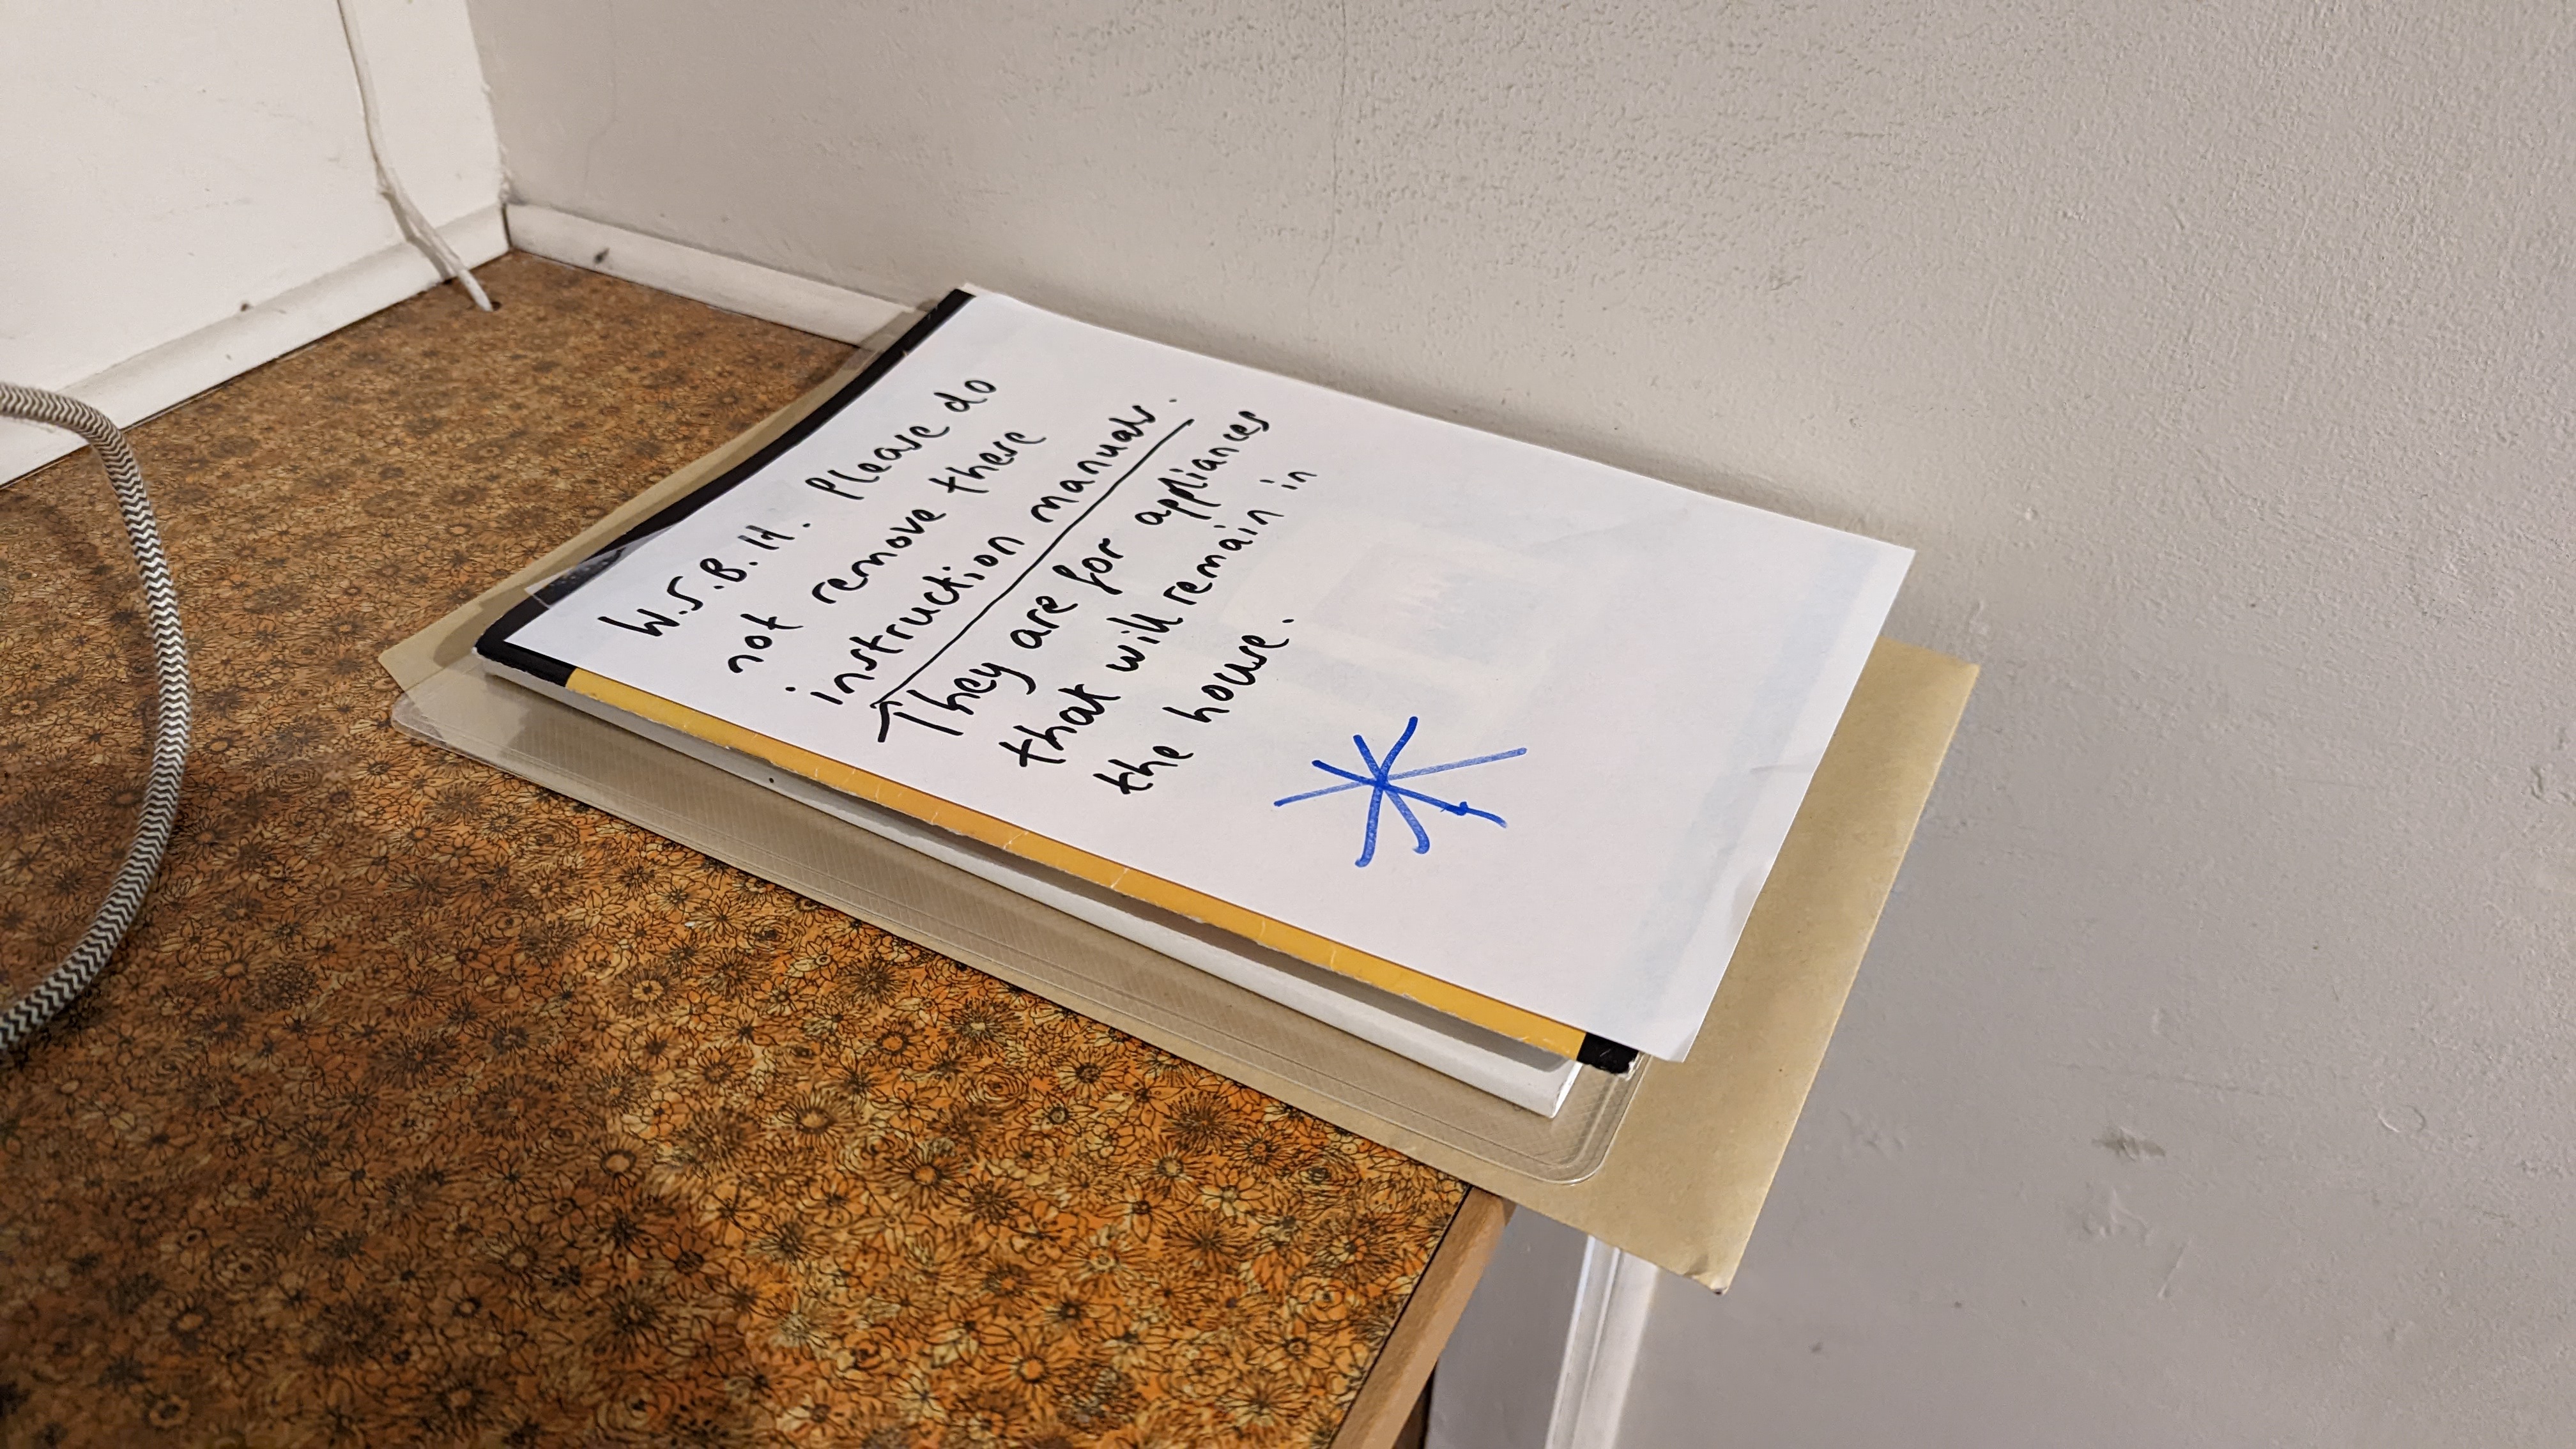 W.S.B.H. Please do
not remove these
instruction manuals.
They are for appliances
that will remain in
the house.